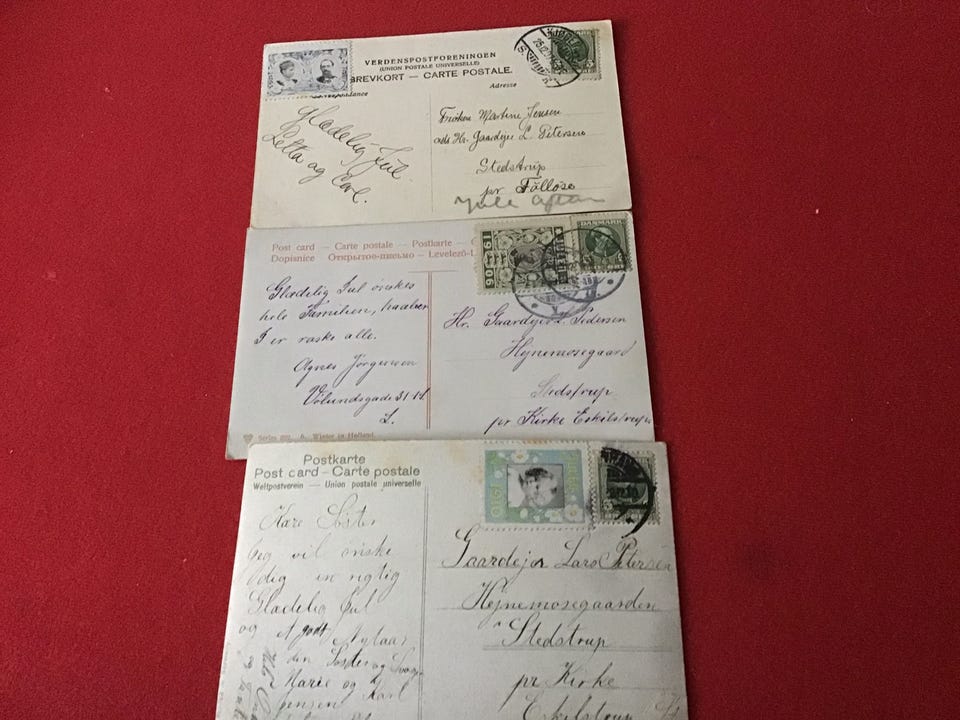 VERDENSPOSTFORENINGEN
(UNION POSTALE UNIVERSELLE)
BREVKORT — CARTE POSTALE.
Adresse
Glædelig Jul
Letta og Carl.
Frøken Martine Jensen
ads Hr. Gaardejer L. Petersen
Stedstrup
pr Tølløse
Jule aften
Post card — Carte postale — Postkarte —
Dopisnice Открытое-письмо — Levelező-L
1906
DANMARK
Glædelig Jul ønskes
hele Familien,
I er raske alle.
Agnes Jörgensen
Vølundsgade 31
L.
Hr. Gaardejer L. Pedersen
Hejnemosegaard
Stedstrup
pr Kirke Eskilstrup
Series A. Winter in Holland
Postkarte
Post card — Carte postale
Weltpostverein — Union postale universelle
JULEN
1910
Kære Søster
Jeg vil ønske
dig en rigtig
Glædelig Jul
og et godt Nytaar
den Søster og Svoger
Marie og Karl
Jensen
Gaardejer Lars Petersen
Hejnemosegaarden
Stedstrup
pr Kirke
Eskilstrup